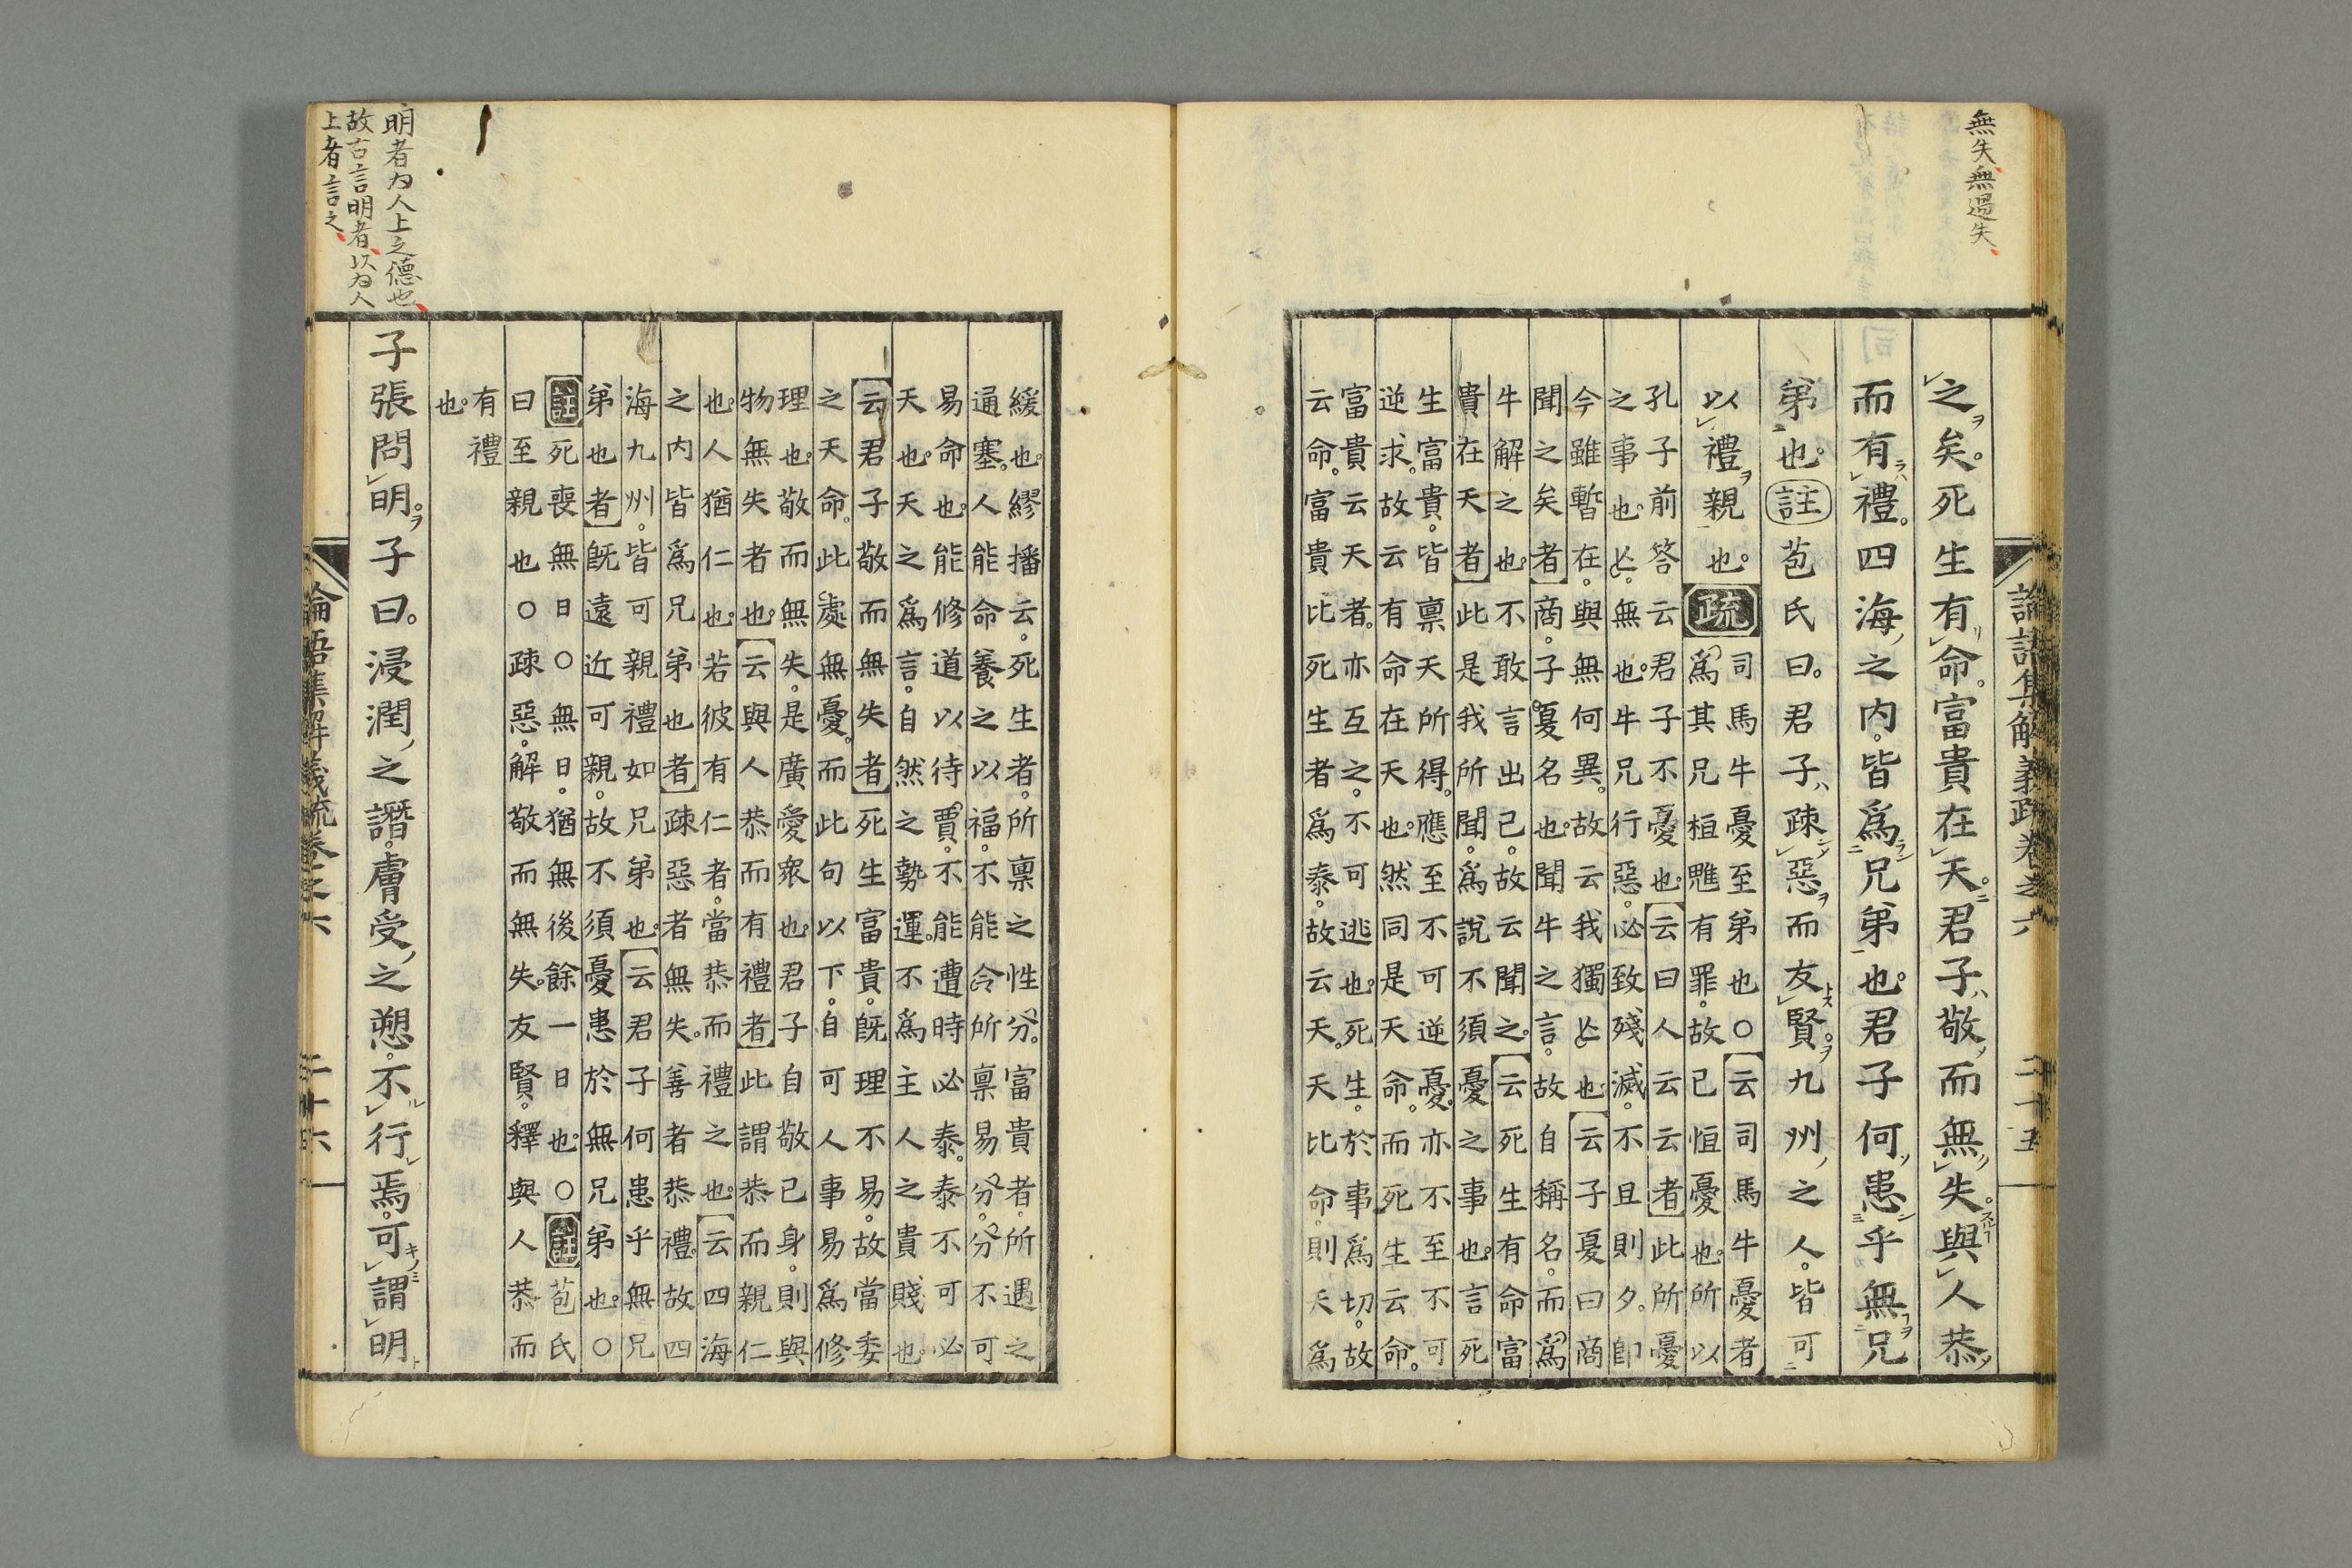 無失無過失
論語集解義疏卷之六 二十五
之矣。死生有命。富貴在天。君子敬而無失。與人恭
而有禮。四海之内。皆爲兄弟也。君子何患乎無兄
弟也。註苞氏曰。君子疎惡而友賢。九州之人。皆可
以禮親也。疏
司馬牛憂至弟也○云司馬牛憂者
爲其兄桓魋有罪。故已恒憂也。所以
孔子前答云君子不憂也。云曰人云云者此所憂
之事也。亡。無也。牛兄行惡。必致殘滅。不且則夕。即
今雖暫在。與無何異。故云我獨亡也云子夏曰商
聞之矣者商。子夏名也。聞牛之言。故自稱名。而爲
牛解之也。不敢言出已。故云聞之。云死生有命富
貴在天者此是我所聞。爲說不須憂之事也。言死
生富貴。皆禀天所得。應至不可逆憂。亦不至不可
逆求。故云有命在天也。然同是天命。而死生云命。
富貴云天者。亦互之。不可逃也。死生。於事爲切。故
云命。富貴比死生者爲泰。故云天。天比命。則天爲
緩也。繆播云。死生者。所禀之性分。富貴者。所遇之
通塞。人能命養之以福。不能令所禀易分。分不可
易命也。能修道以待賈。不能遭時必泰。泰不可必
天也。天之爲言。自然之勢運。不爲主人之貴賤也。
云君子敬而無失者死生富貴。既理不易。故當委
之天命。此處無憂。而此句以下。自可人事易爲修
理也。敬而無失。是廣愛衆也。君子自敬己身。則與
物無失者也。云與人恭而有禮者此謂恭而親仁
也。人猶仁也。若彼有仁者。當恭而禮之也。云四海
之内皆爲兄弟也者疎惡者無失。善者恭禮。故四
海九州。皆可親禮如兄弟也。云君子何患乎無兄
弟也者既遠近可親。故不須憂患於無兄弟也。○
註死喪無日○無日。猶無後餘一日也。○註苞氏
曰至親也○疎惡。解敬而無失。友賢。釋與人恭而
有禮
也。
子張問明。子曰。浸潤之譖。膚受之愬。不行焉。可謂明
明者为人上之德也
故古言明者以为人
上者言之
論語集解義疏卷之六 二十六